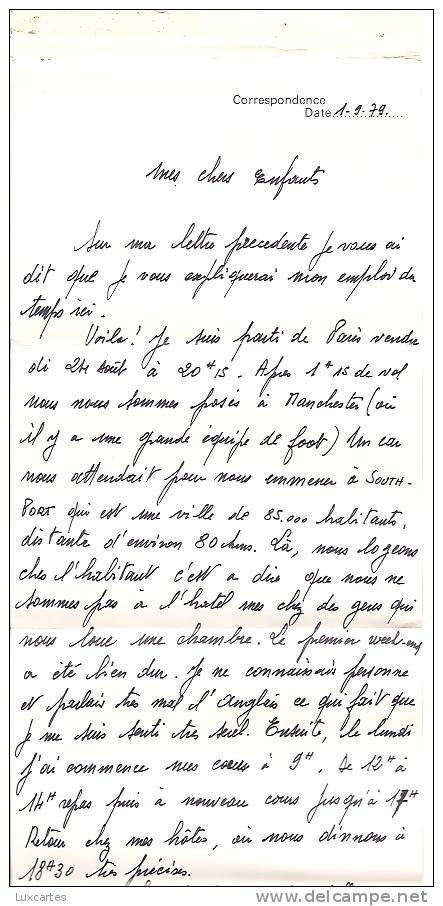 Correspondence
Date 1-9-79.
Mes chers Enfants
Sur ma lettre precedente je vous ai
dit que je vous expliquerai mon emploi du
temps ici.
Voila! Je suis parti de Paris vendre
di 24 août à 20H15. Apres 1H15 de vol
nous nous sommes posés à Manchester (où
il y a une grande équipe de foot) Un car
nous attendait pour nous emmener à SOUTH-
PORT qui est une ville de 85.000 habitants,
distante d'environ 80 kms. Là, nous logeons
chez l'habitant c'est a dire que nous ne
sommes pas à l'hotel mes chez des gens qui
nous loue une chambre. Le premier week-end
a été bien dur. Je ne connaissais personne
et parlais tres mal l'anglais ce qui fait que
je me suis senti tres seul. Ensuite, le lundi
j'ai commence mes cours à 9H. De 12H à
14H repas puis à nouveau cours jusqu'à 17H
Retour chez mes hôtes, où nous dinnons à
18H30 très précises.
Luxcartes
www.delcampe.net